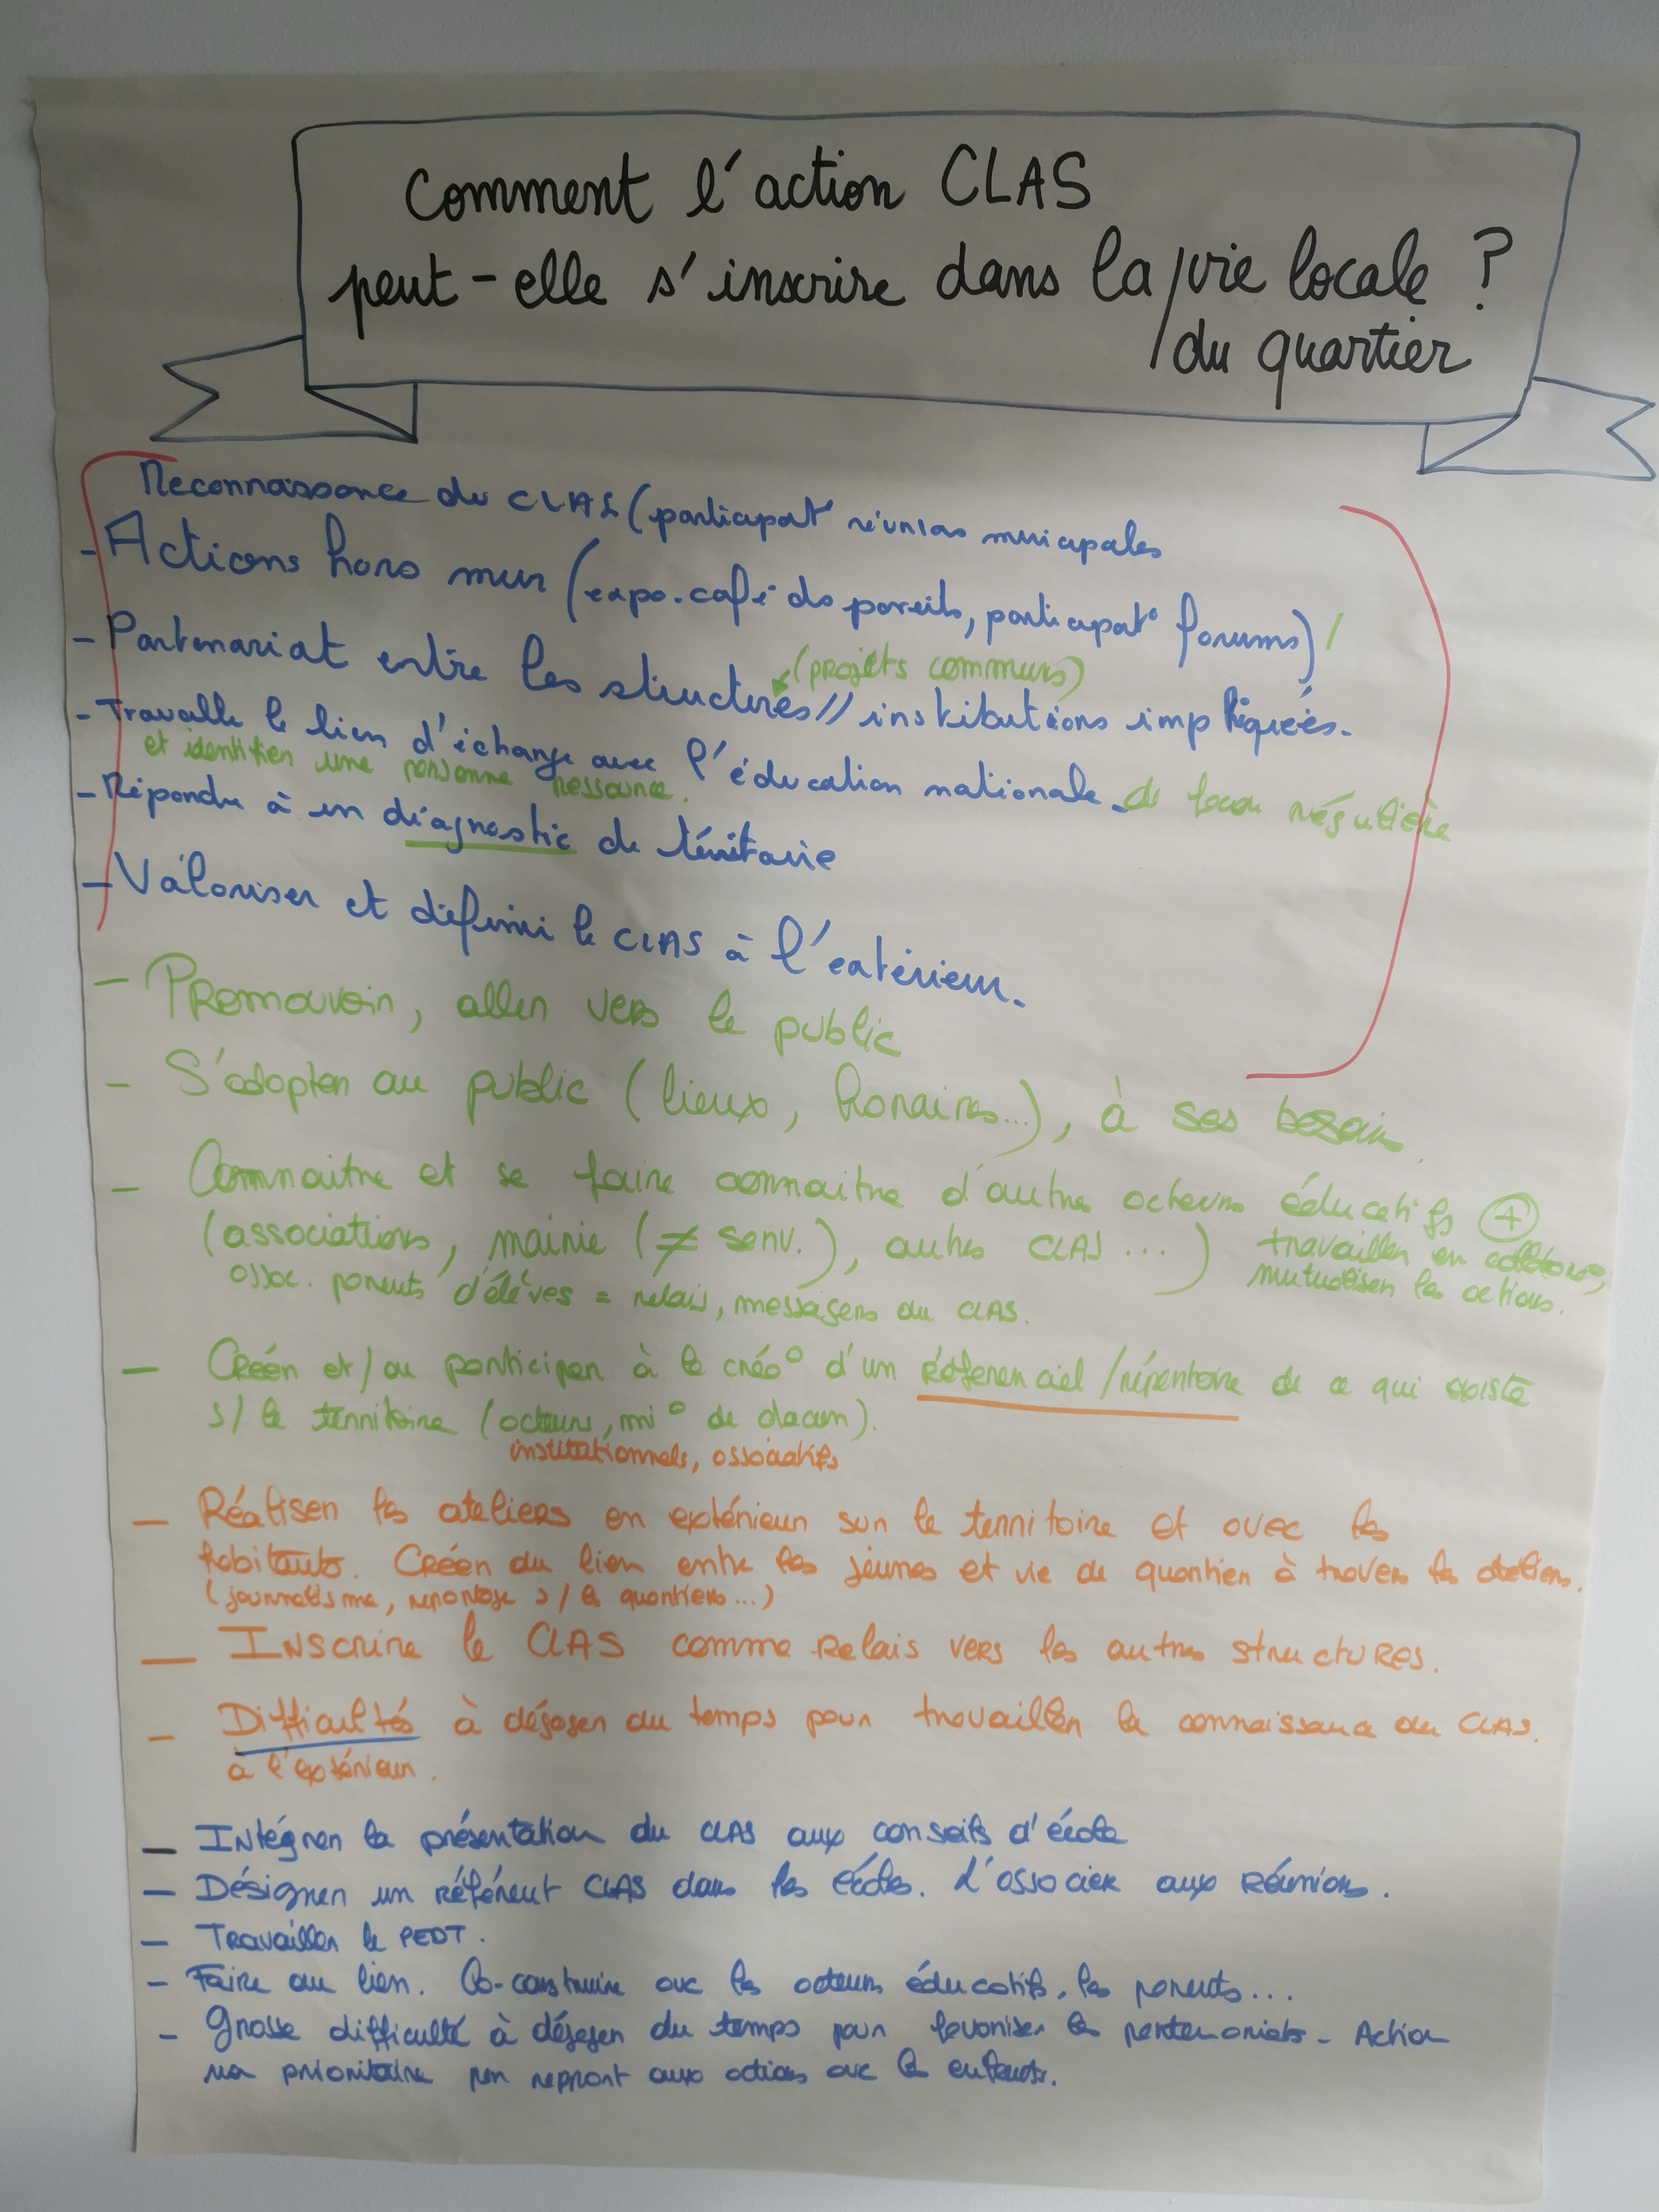 Comment l'action CLAS
peut-elle s'inscrire dans la vie locale ?
/ du quartier
Reconnaissance du CLAS (participat° réunions municipales
- Actions hors mur (expo. café des parents, participat° forums) /
(projets communs)
- Partenariat entre les structures // institutions impliquées.
- Travaille le lien d'échange avec l'éducation nationale. de façon régulière
et identifier une personne ressource.
- Répondre à un diagnostic de territoire
- Valoriser et définir le CLAS à l'extérieur.
- Promouvoir, aller vers le public
- S'adapter au public (lieux, horaires...), à ses besoins
- Connaitre et se faire connaitre d'autres acteurs éducatifs +
(associations, mairie (≠ serv.), autres CLAS ...) travailler en
mutualiser les actions.
assoc. parents d'élèves = relais, messagers du CLAS.
- Créer et/ou participer à la créa° d'un référenciel /répertoire de ce qui existe
s/ le territoire (acteurs, mi° de chacun).
institutionnels, associatifs
- Réaliser les ateliers en extérieur sur le territoire et avec les
habitants. Créer du lien entre les jeunes et vie de quartier à travers les ateliers.
(journalisme, reportage s/ les quartiers...)
- Inscrire le CLAS comme relais vers les autres structures.
- Difficultés à dégager du temps pour travailler la connaissance du CLAS.
à l'extérieur.
- Intégrer la présentation du CLAS aux conseils d'école
- Désigner un référent CLAS dans les écoles. L'associer aux réunions.
- Travailler le PEDT.
- Faire du lien. Co-construire avc les acteurs éducatifs, les parents...
- Grosse difficulté à dégager du temps pour favoriser les partenariats - Action
non prioritaire par rapport aux actions avc les enfants.